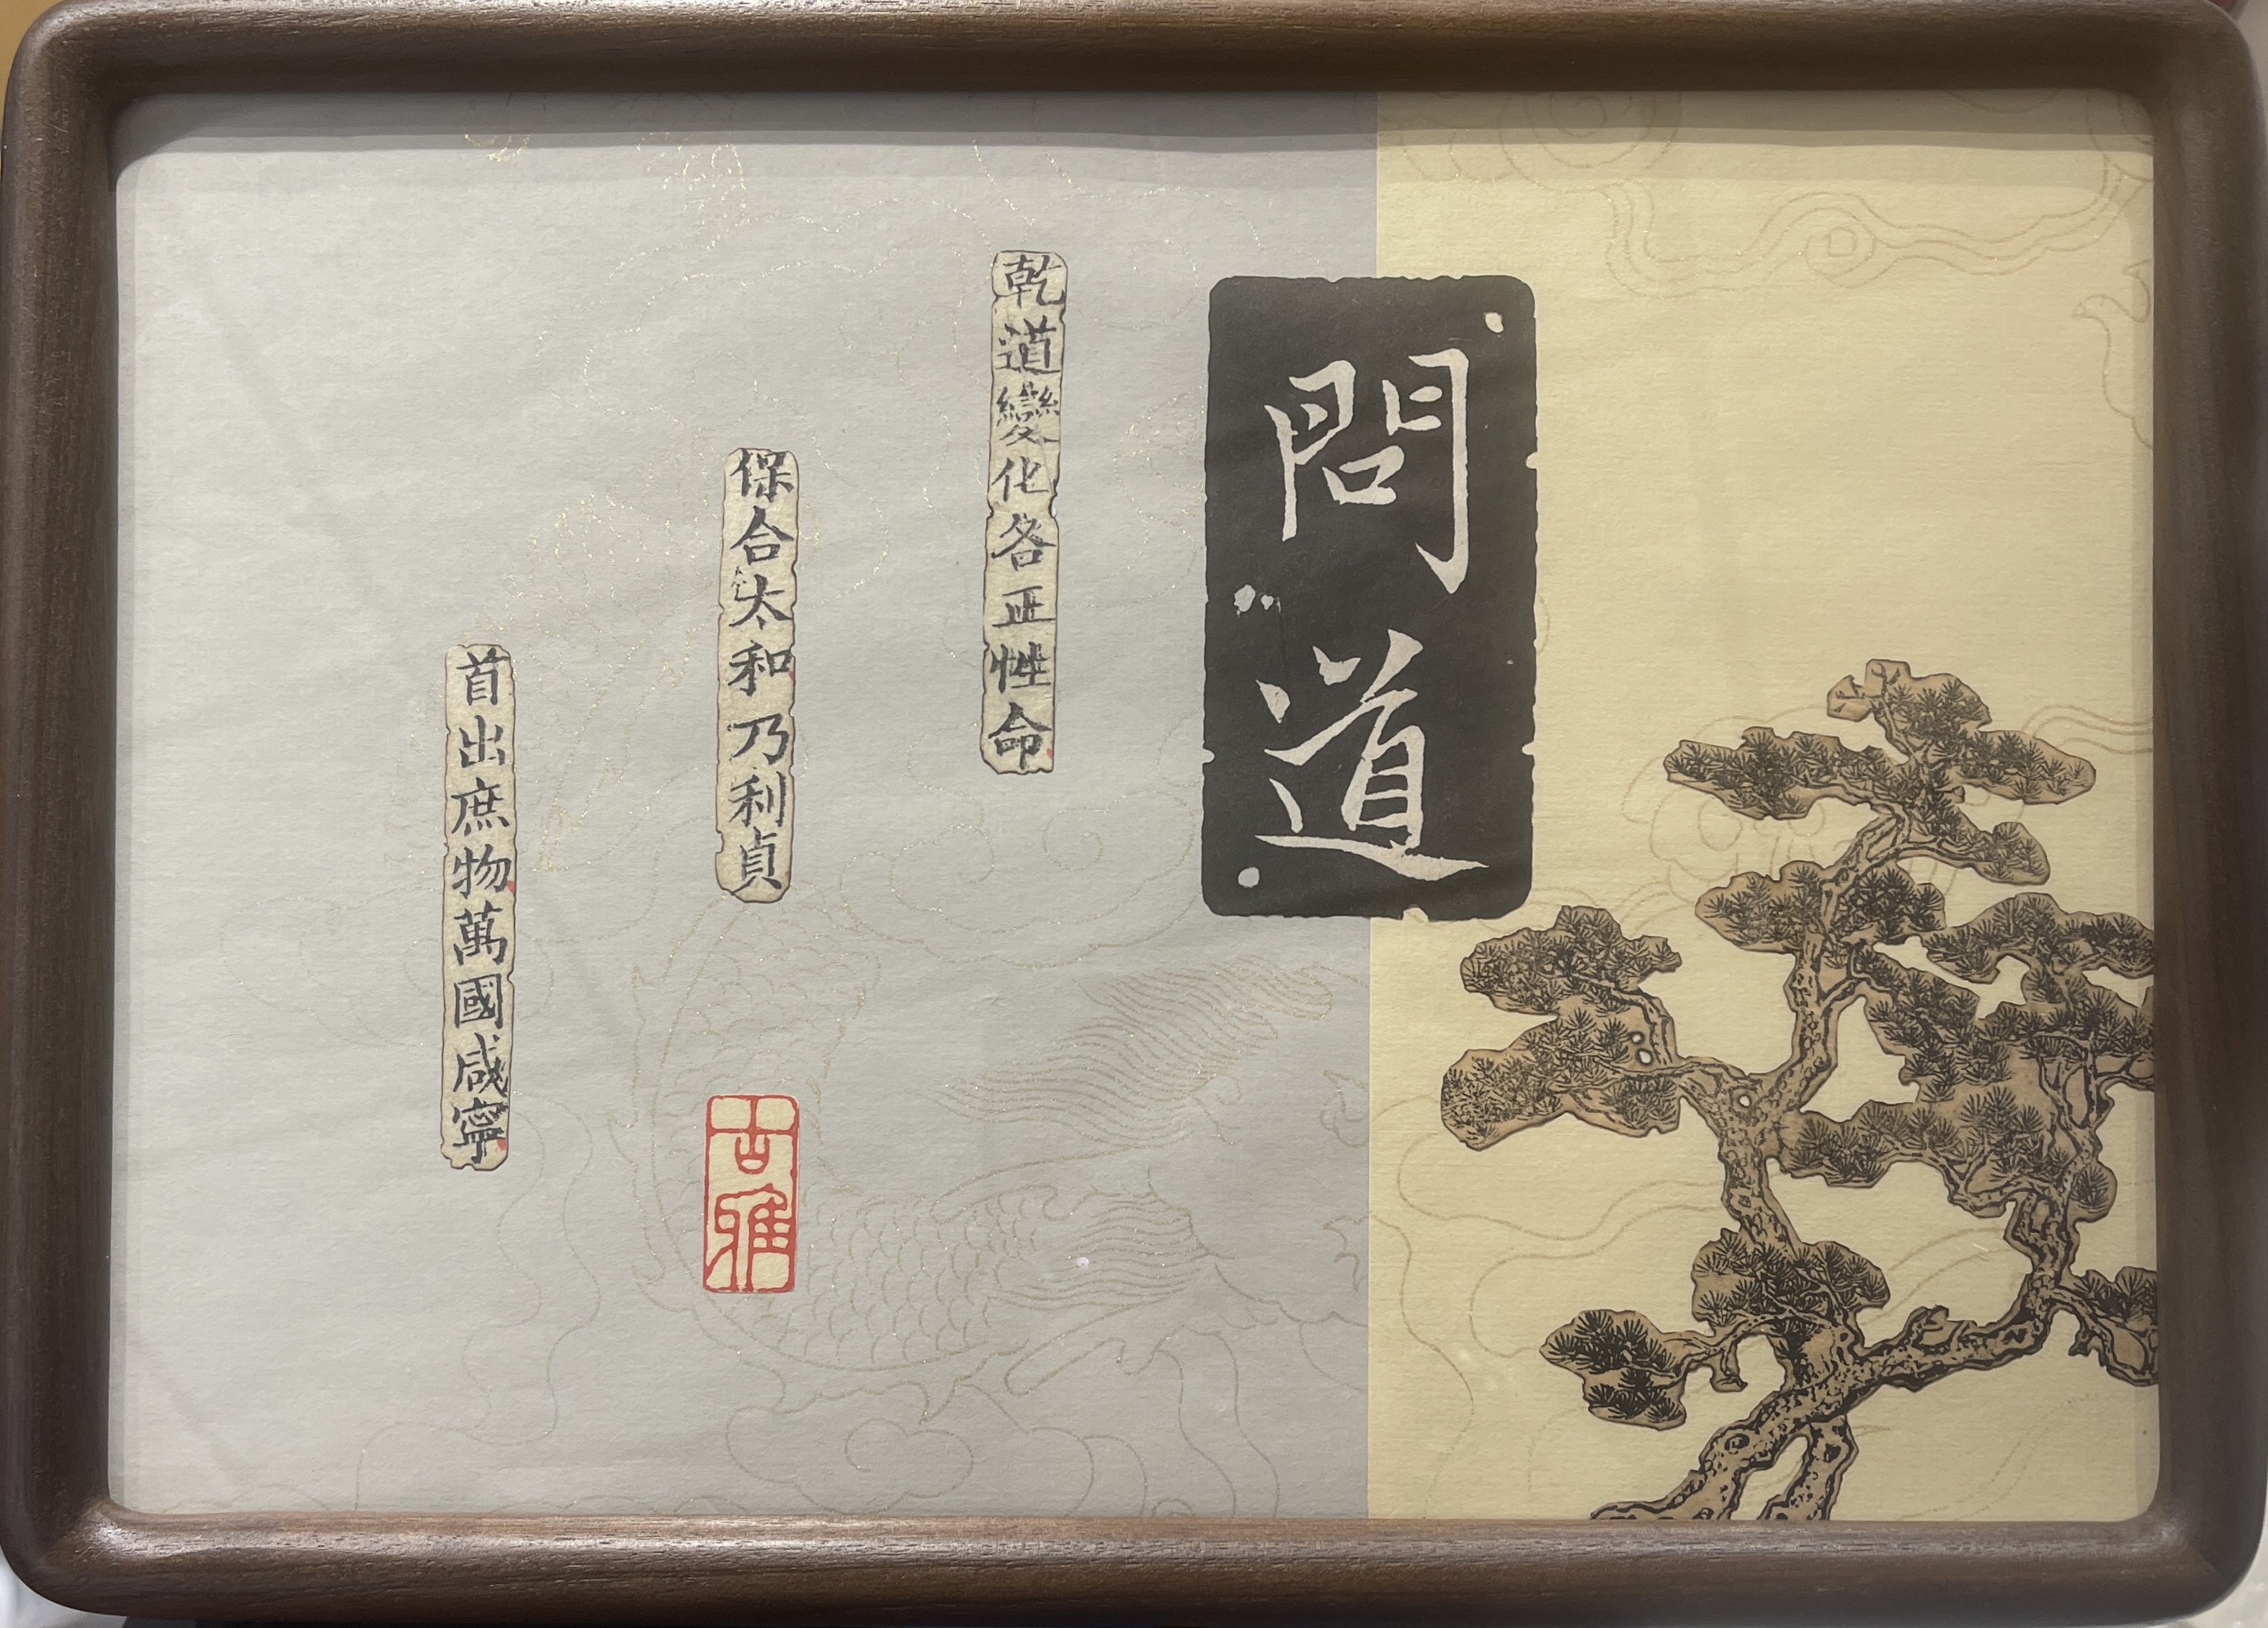 問道
乾道變化各正性命
保合太和乃利貞
首出庶物萬國咸寧
古雅